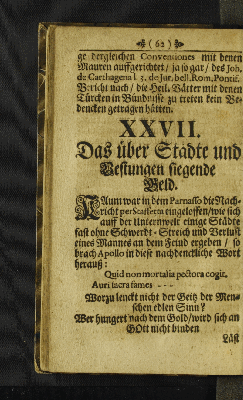 (62)
ge dergleichen Conventiones mit denen
Mauren auffgerichtet / ja so gar / des Joh.
de Carthagena l. 3. de Jur. bell. Rom. Pontif.
Bericht nach / die Heil. Vätter mit denen
Türcken in Bündnisse zu treten kein Be-
dencken getragen hätten.
XXVII.
Das über Städte und
Vestungen siegende
Geld.
KAum war in dem Parnasso die Nach-
richt per Staffeten eingeloffen / wie sich
auff der Unterwelt einige Städte
fast ohne Schwerdt-Streich und Verlust
eines Mannes an dem Feind ergeben / so
brach Apollo in diese nachdenckliche Wort
herauß:
Quid non mortalia pectora cogit,
Auri sacra fames - - -
Worzu lenckt nicht der Geitz der Men-
schen edlen Sinn?
Wer hungert nach dem Gold / wird sich an
GOtt nicht binden
Läst